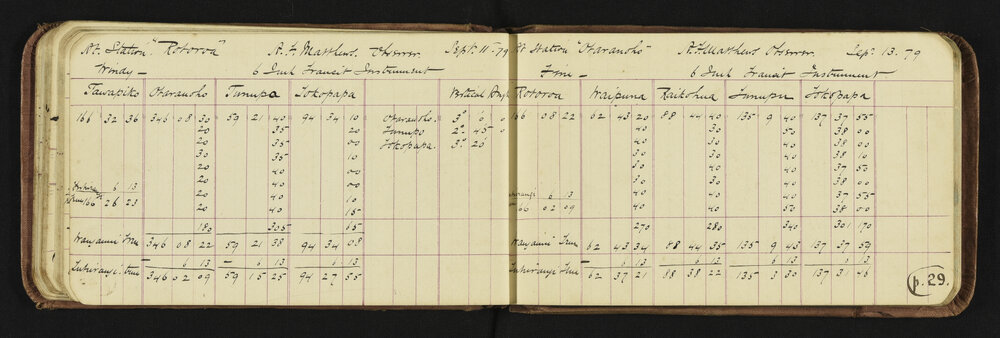 At Station "Rotoroa" A. H. Matthews. Observer Sept. 11th 79
Windy – 6 Inch Transit Instrument
Tawapiko Otaranoho Tunupo Tokopapa Vertical Angle
166 32 36 346 08 30 59 21 40 94 34 10 Otaranoho. 3° 0 0
20 35 20 Tunupo 2° 45 0
20 35 00 Tokopapa. 3° 20
30 35 10
20 40 00
20 40 00
6 13 20 40 10
True 166 26 23 20 40 15
180 305 65
Wanganui True 346 08 22 59 21 38 94 34 08
– 6 13 – 6 13 6 13
Tuhirangi true 346 02 09 59 15 25 94 27 55
At Station "Otaranoho" A. H. Matthews Observer. Sep. 13. 79
Fine – 6 Inch Transit Instrument
Rotoroa Waipuna Raikohua Tunupu Tokopapa
166 08 22 62 43 20 88 44 40 135 9 40 137 37 55
40 30 50 38 00
30 30 40 38 00
30 30 40 38 10
40 40 40 37 53
30 30 40 38 00
6 13 40 40 40 37 55
60 02 09 40 40 50 38 00
270 280 340 301 170
Wanganui True 62 43 34 88 44 35 135 9 43 137 37 59
6 13 6 13 6 13 6 13
Tuhirangi True 62 37 21 88 38 22 135 3 30 137 31 46
p. 29.